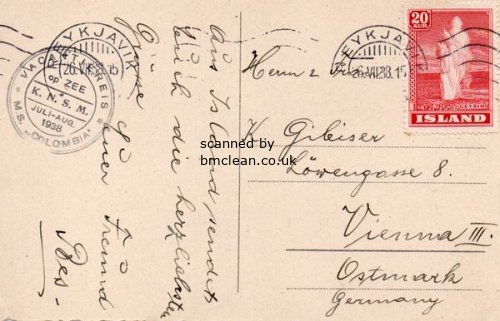 REYKJAVIK
26.VII.38.15
VACANTIEREIS
OP ZEE
K. N. S. M.
JULI-AUG.
1938
M.S. „COLOMBIA"
Aus Island sendet
Euch die herzlichsten
Grüsse
Euer Freund
REYKJAVIK
26.VII.38.15
20
AUR
GEYSIR
ISLAND
Herrn
scanned by
bmclean.co.uk
K Gibiser
Löwengasse 8.
Vienna III.
Ostmark
Germany